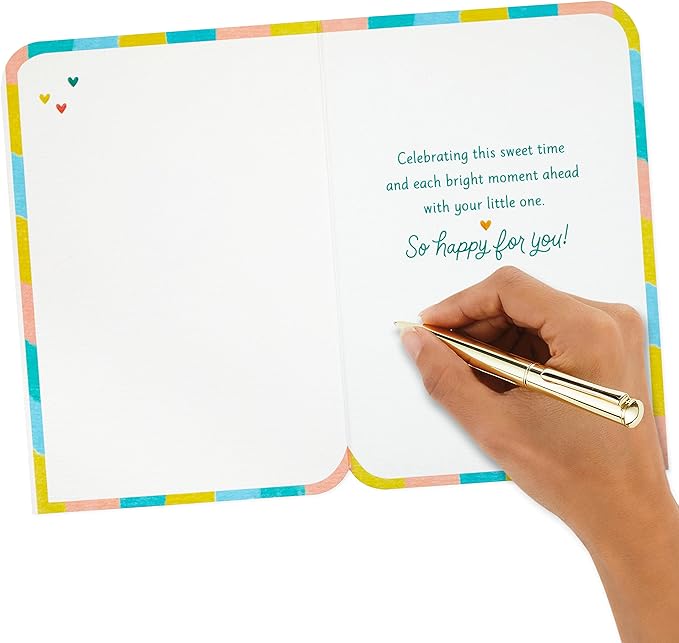 Celebrating this sweet time
and each bright moment ahead
with your little one.
So happy for you!